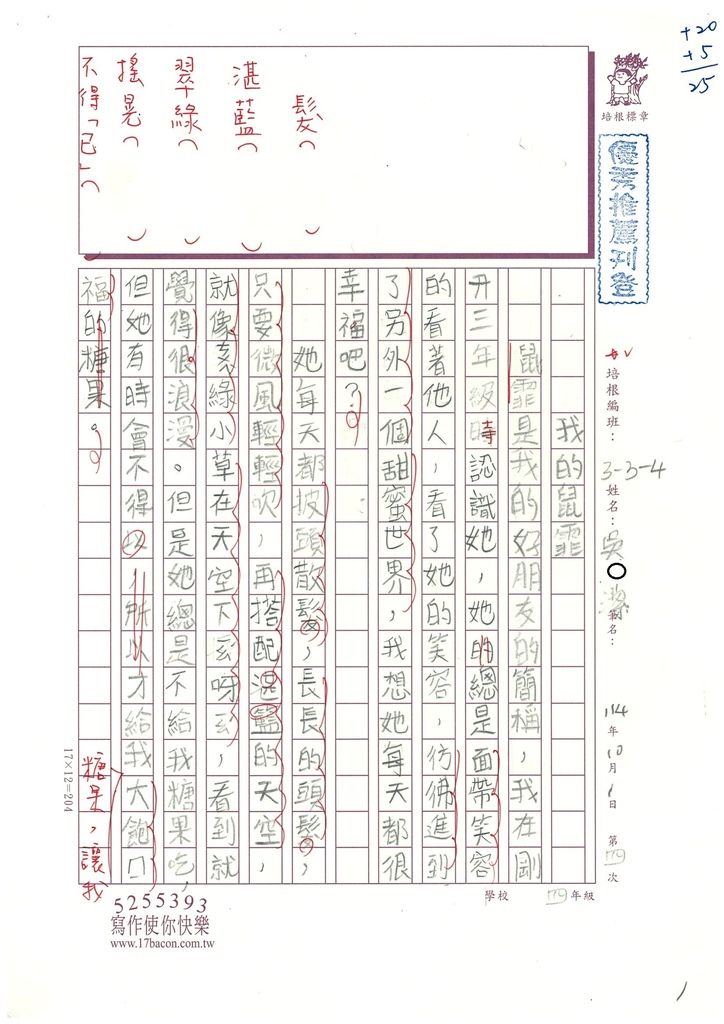 +20
+5
25
培根標章
優秀推薦刊登
培根編班：3-3-4
姓名：吳
篇名：
114年10月1日 第四次
髮（ ）
湛藍（ ）
翠綠（ ）
搖晃（ ）
不得「已」（ ）
我的鼠霏
鼠霏是我的好朋友的簡稱，我在剛
升三年級時認識她，她的總是面帶笑容
的看著他人，看了她的笑容，彷彿進到
了另外一個甜蜜世界，我想她每天都很
幸福吧？
她每天都披頭散髮，長長的頭髮，
只要微風輕輕吹，再搭配湛藍的天空，
就像綠小草在天空下玄呀玄，看到就
覺得很浪漫。但是她總是不給我糖果吃，
但她有時會不得以，所以才給我大飽口
糖果，讓我
福的糖果。
17×12=204
學校 四年級
5255393
寫作使你快樂
www.17bacon.com.tw
1